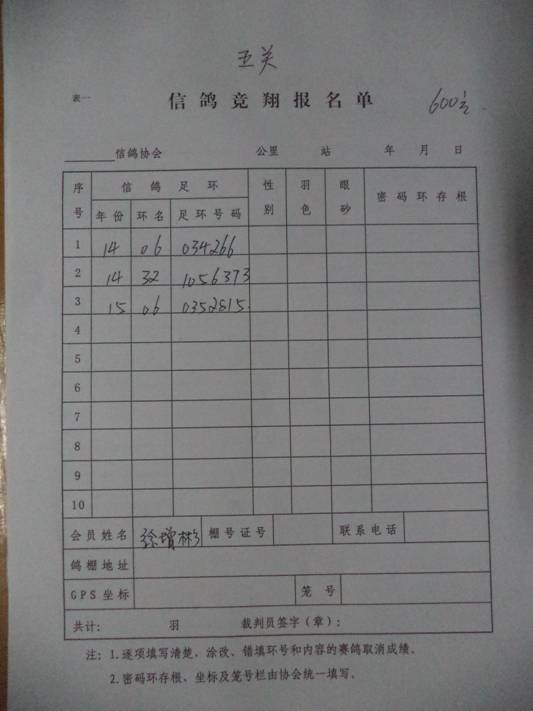 五关
表一
信鸽竞翔报名单
600羽
信鸽协会 公里 站 年 月 日
序号 信鸽足环 性别 羽色 眼砂 密码环存根
年份 环名 足环号码
1 14 06 034266
2 14 32 1056373
3 15 06 0352815
4
5
6
7
8
9
10
会员姓名 徐增彬 棚号证号 联系电话
鸽棚地址
GPS坐标 笼号
共计: 羽 裁判员签字(章):
注: 1.逐项填写清楚、涂改、错填环号和内容的赛鸽取消成绩。
2.密码环存根、坐标及笼号栏由协会统一填写。